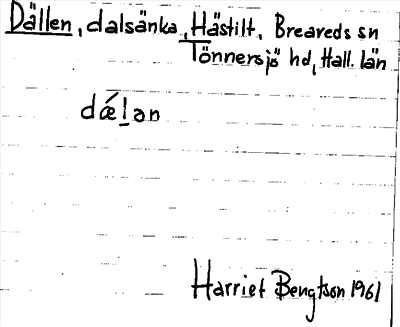 Dällen, dalsänka, Hästilt, Breareds sn
Tönnersjö hd, Hall. län
dǽl̲ən
Harriet Bengtson 1961